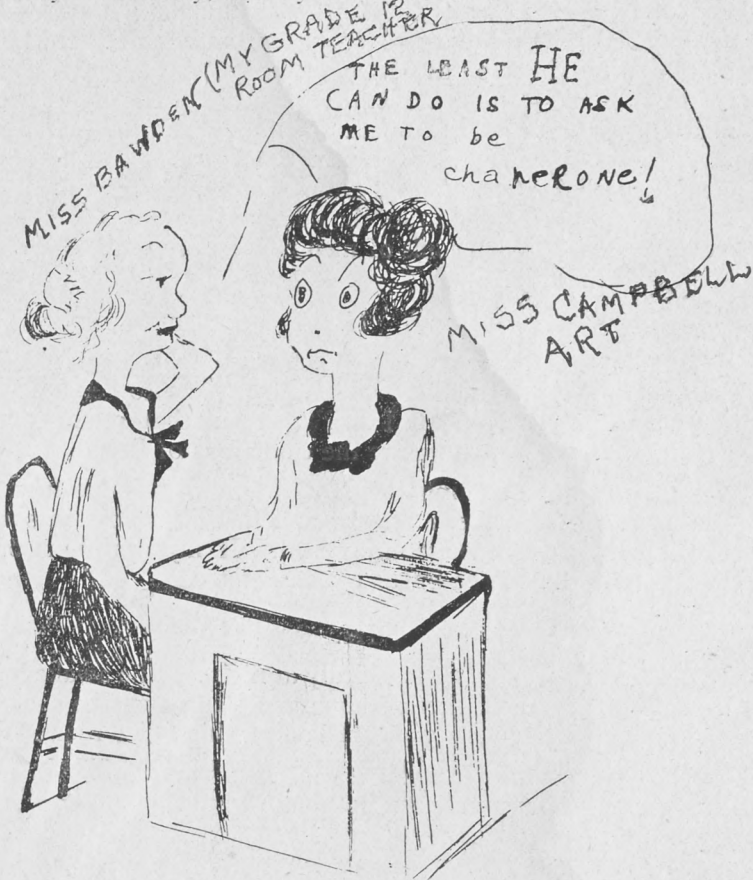 MISS BAWDEN (MY GRADE 12
ROOM TEACHER
THE LEAST HE
CAN DO IS TO ASK
ME TO be
chaperone!
MISS CAMPBELL
ART